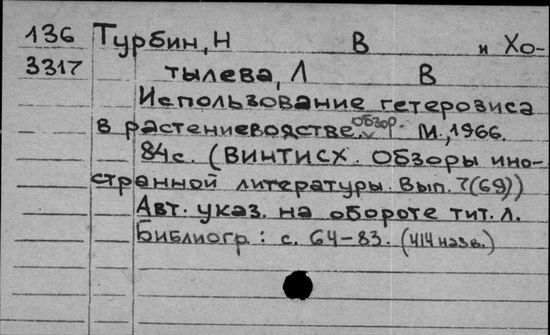 136 Турбин, Н В и Хо-
3317 тылева, Л В
Использование гетерозиса
в растениеводстве. Обзор. М., 1966.
84с. (ВИНТИСХ. Обзоры ино-
странной литературы. Вып. 7(69))
Авт. указ. на обороте тит. л.
Библиогр: с. 64-83. (414 назв.)